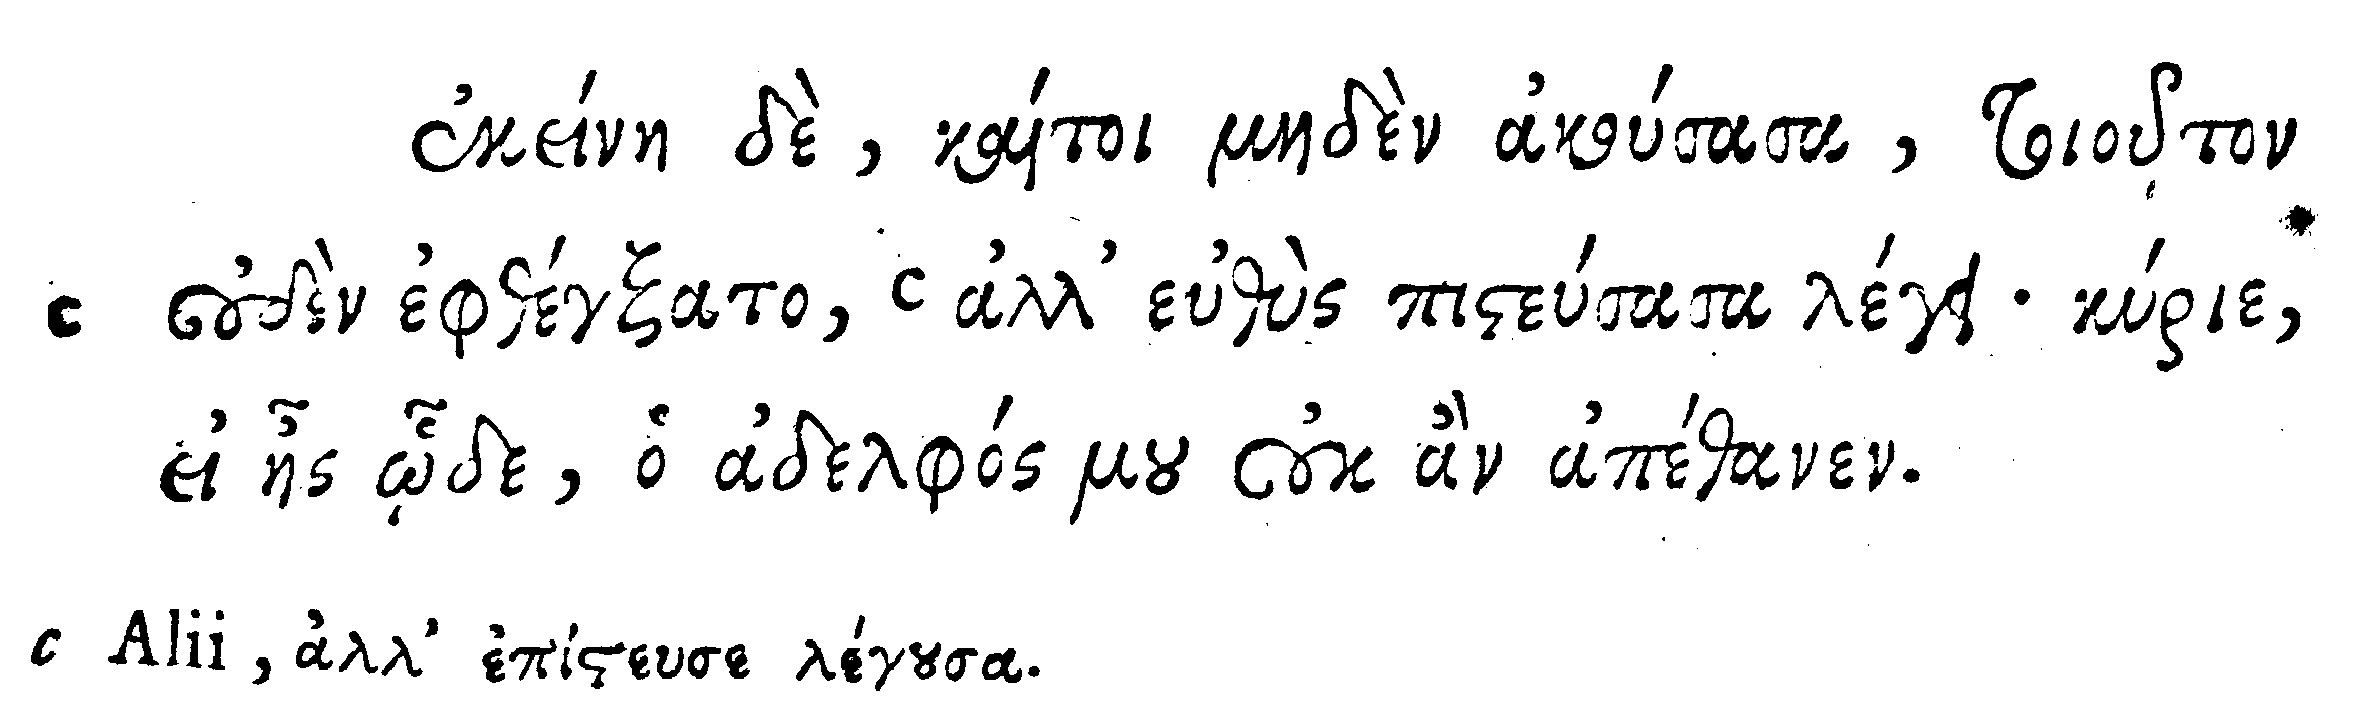 ἐκείνη δὲ, καίτοι μηδὲν ἀκούσασα, τοιοῦτον
c οὐδὲν ἐφθέγξατο, c ἀλλ’ εὐθὺς πιστεύσασα λέγει · κύριε,
εἰ ἦς ὧδε, ὁ ἀδελφός μου οὐκ ἂν ἀπέθανεν.
c Alii, ἀλλ’ ἐπίστευσε λέγουσα.